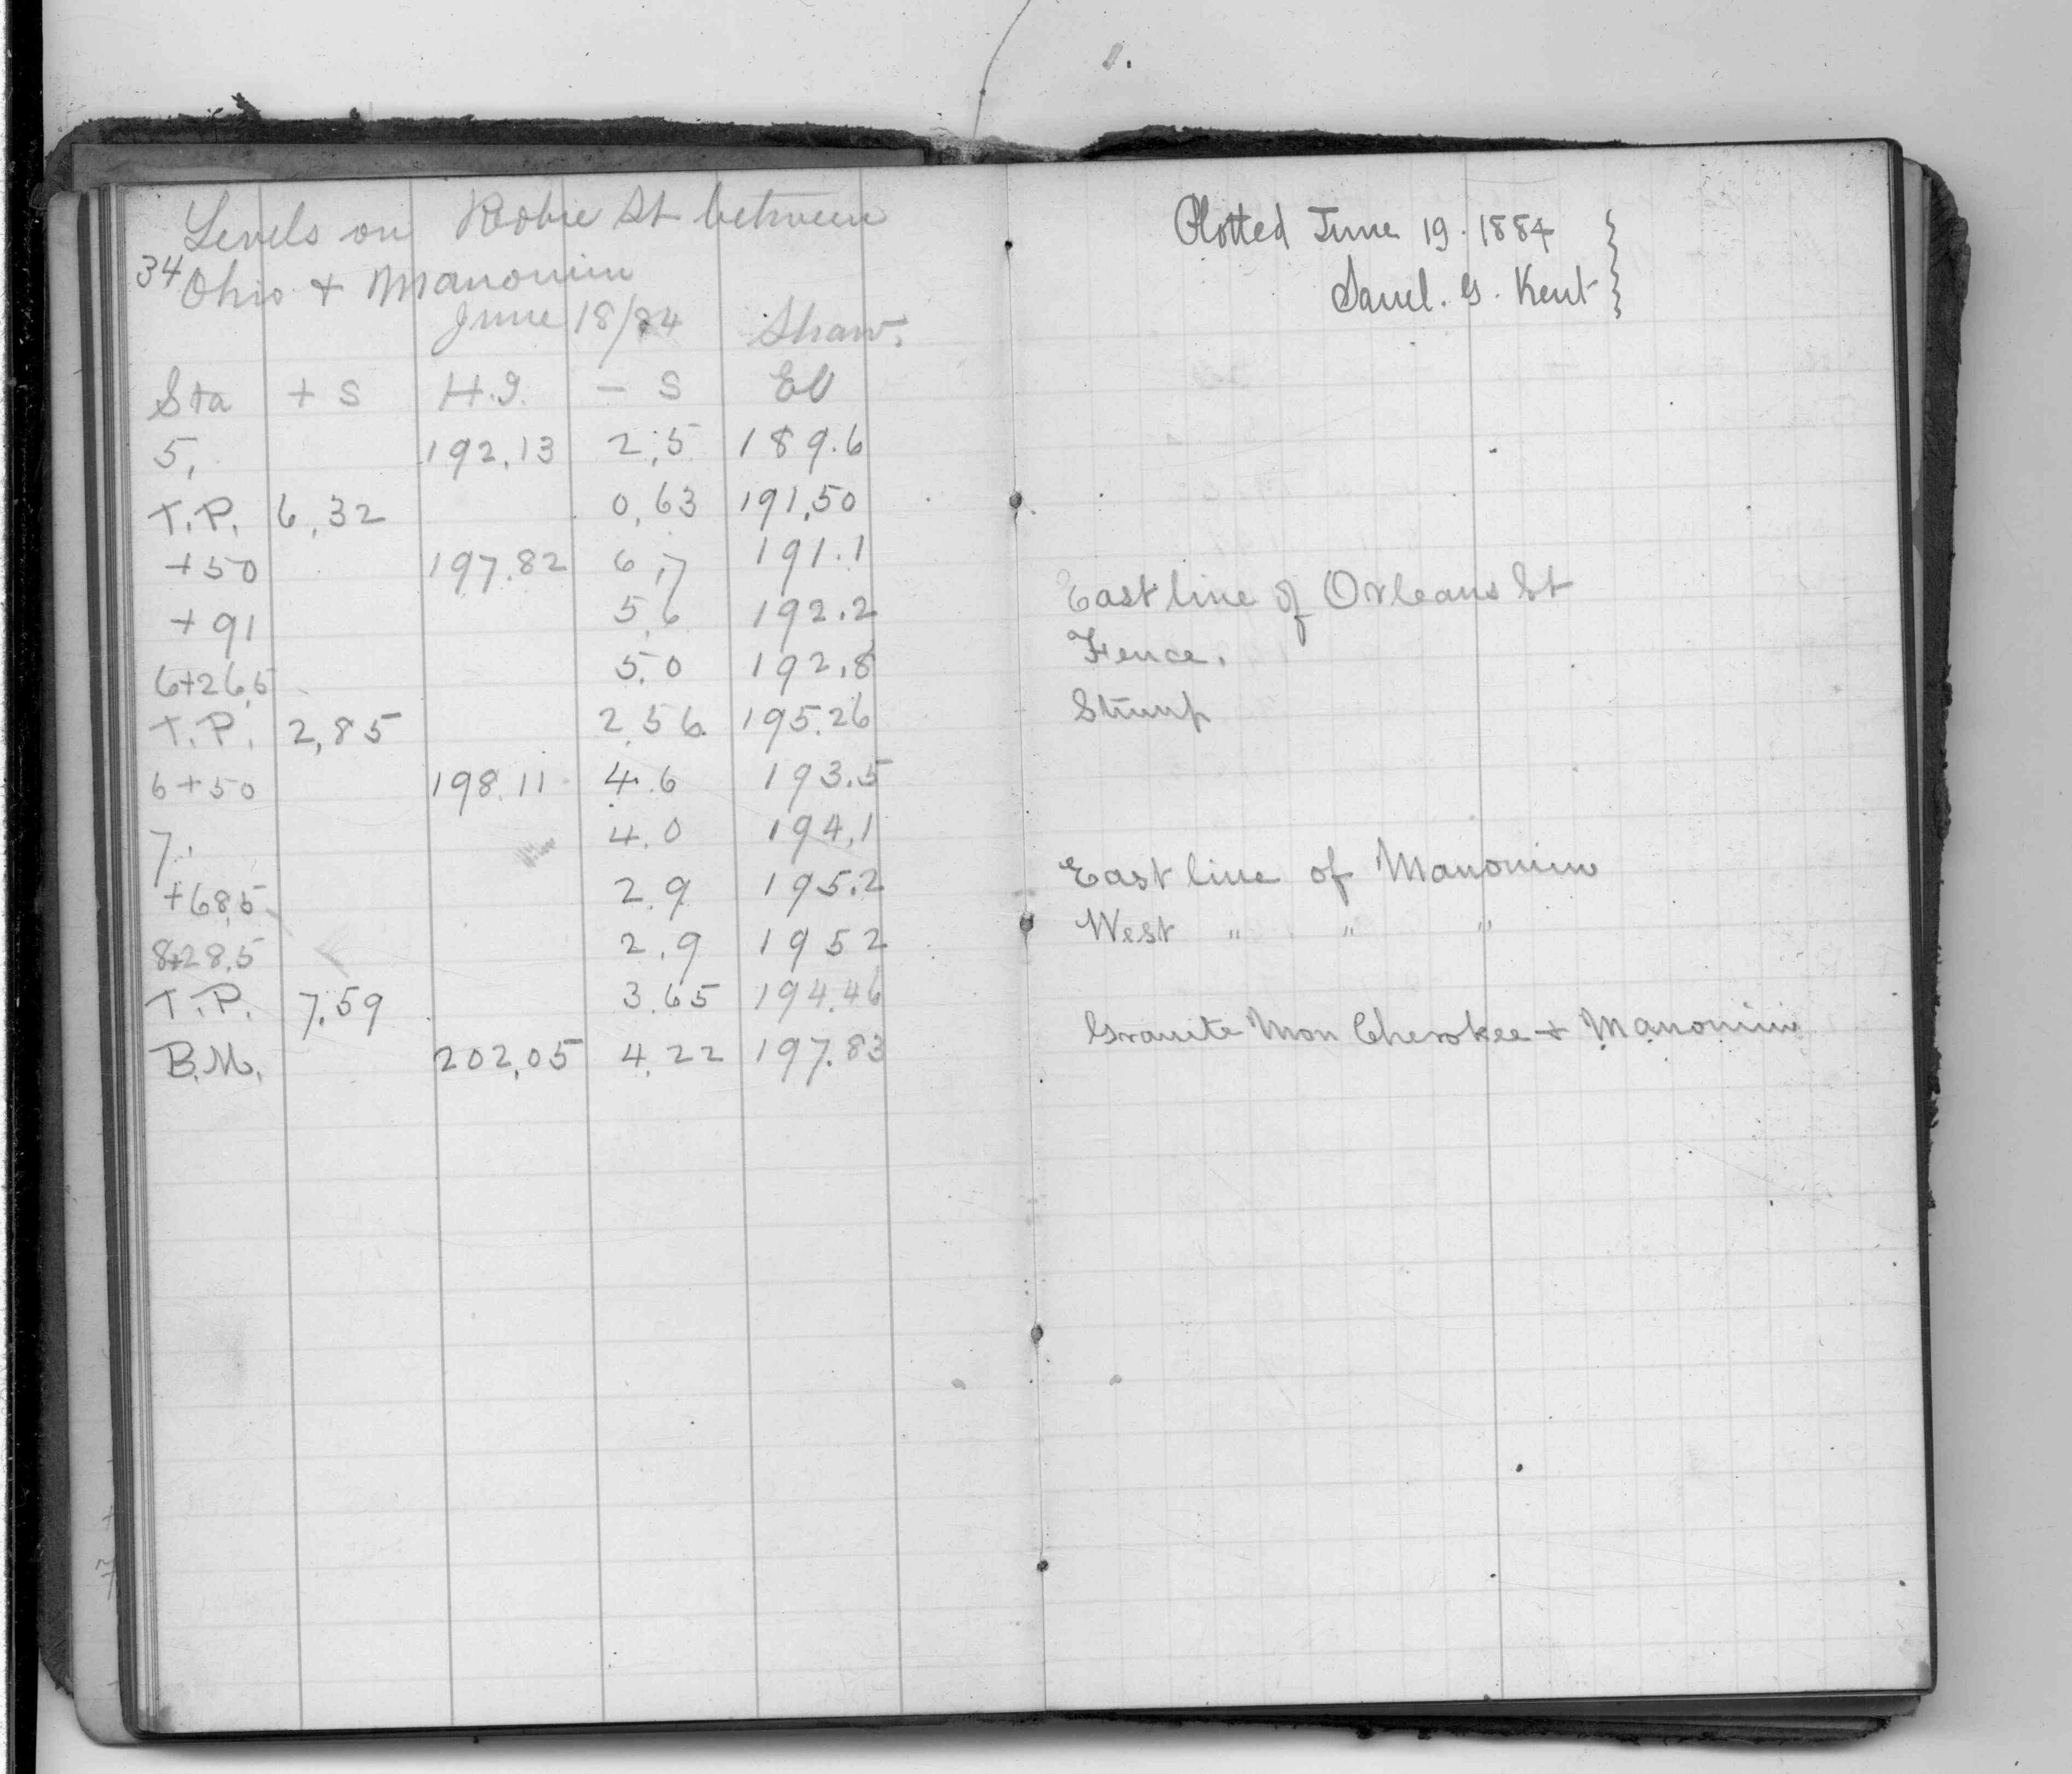 Levels on Robie St between
34 Ohio + Manomin
June 18/84 Shaw.
Sta + S H.I. - S El
5, 192,13 2,5 189.6
T.P. 6,32 0,63 191,50
+50 197.82 6,7 191.1
+91 5,6 192.2
6+26,5 5.0 192,8
T.P. 2,85 2,56 195.26
6+50 198.11 4.6 193.5
7. 4.0 194,1
+68,5 2.9 195.2
8+28.5 2.9 1952
T.P. 7.59 3.65 194.46
B.M. 202,05 4,22 197.83
Plotted June 19. 1884
Saml. G. Kent
East line of Orleans St
Fence.
Stump
East line of Manomin
West " " "
Granite Mon Cherokee + Manomin